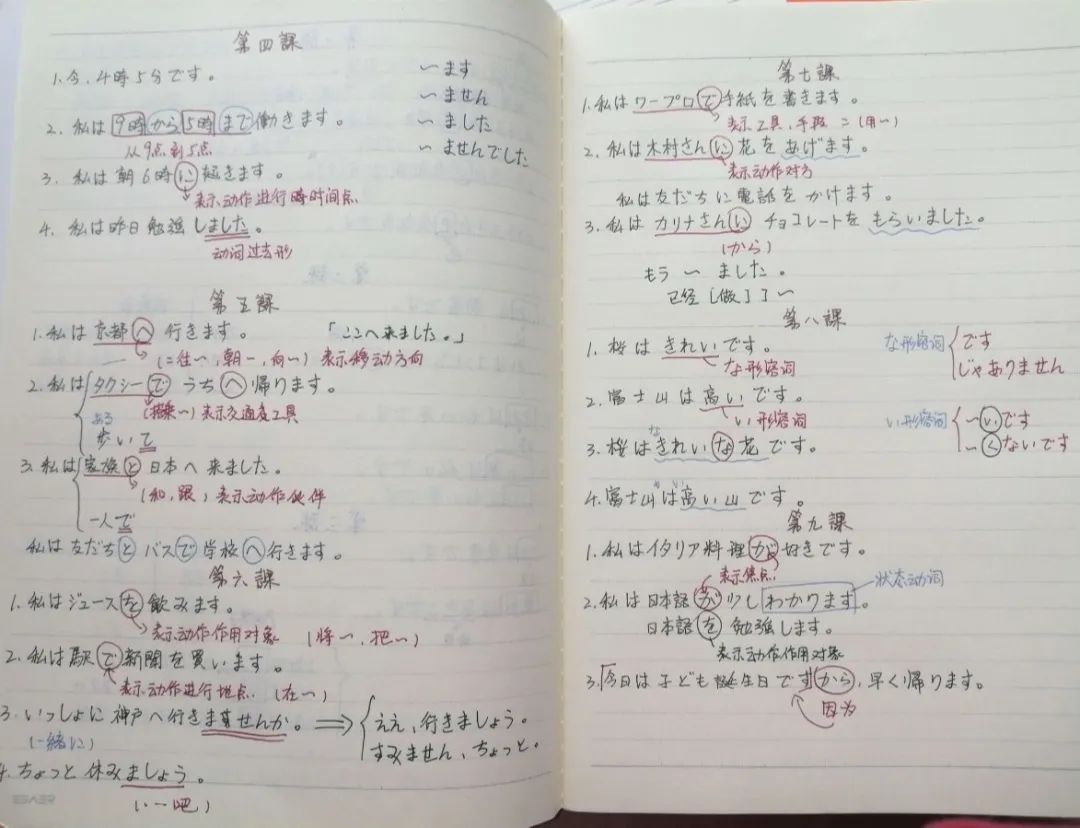 第四課
1.今、4時5分です。
～ます
～ません
2. 私は9時から5時まで働きます。
～ました
从9点到5点
～ませんでした
3. 私は朝6時に起きます。
表示动作进行時时间点
4. 私は昨日勉強しました。
动词过去形
第五課
1.私は京都へ行きます。 「ここへ来ました。」
(=往～,朝～,向～) 表示移动方向
2.私はタクシーでうちへ帰ります。
(搭乘～)表示交通工具
ある
歩いて
3.私は家族と日本へ来ました。
(和,跟) 表示动作伙伴
一人で
私は友だちとバスで学校へ行きます。
第六課
1.私はジュースを飲みます。
表示动作作用对象 (将～,把～)
2.私は駅で新聞を買います。
表示动作进行地点 (在～)
3.いっしょに神戸へ行きませんか。 ⇒ ええ、行きましょう。
(一緒に)
すみません、ちょっと。
4.ちょっと休みましょう。
(～吧)
第七課
1.私はワープロで手紙を書きます。
表示工具,手段 = (用～)
2.私は木村さんに花をあげます。
表示动作对方
私は友だちに電話をかけます。
3.私はカリナさんにチョコレートをもらいました。
(から)
もう～ました。
已经[做]了～
第八課
1. 桜はきれいです。
な形容词
な形容词 です
じゃありません
2.富士山は高いです。
い形容词
い形容词 ～いです
～くないです
な
3.桜はきれいな花です。
4.富士山は高い山です。
第九課
1.私はイタリア料理が好きです。
表示焦点
状态动词
2.私は日本語が少しわかります。
日本語を勉強します。
表示动作作用对象
3.今日は子ども誕生日ですから、早く帰ります。
因为